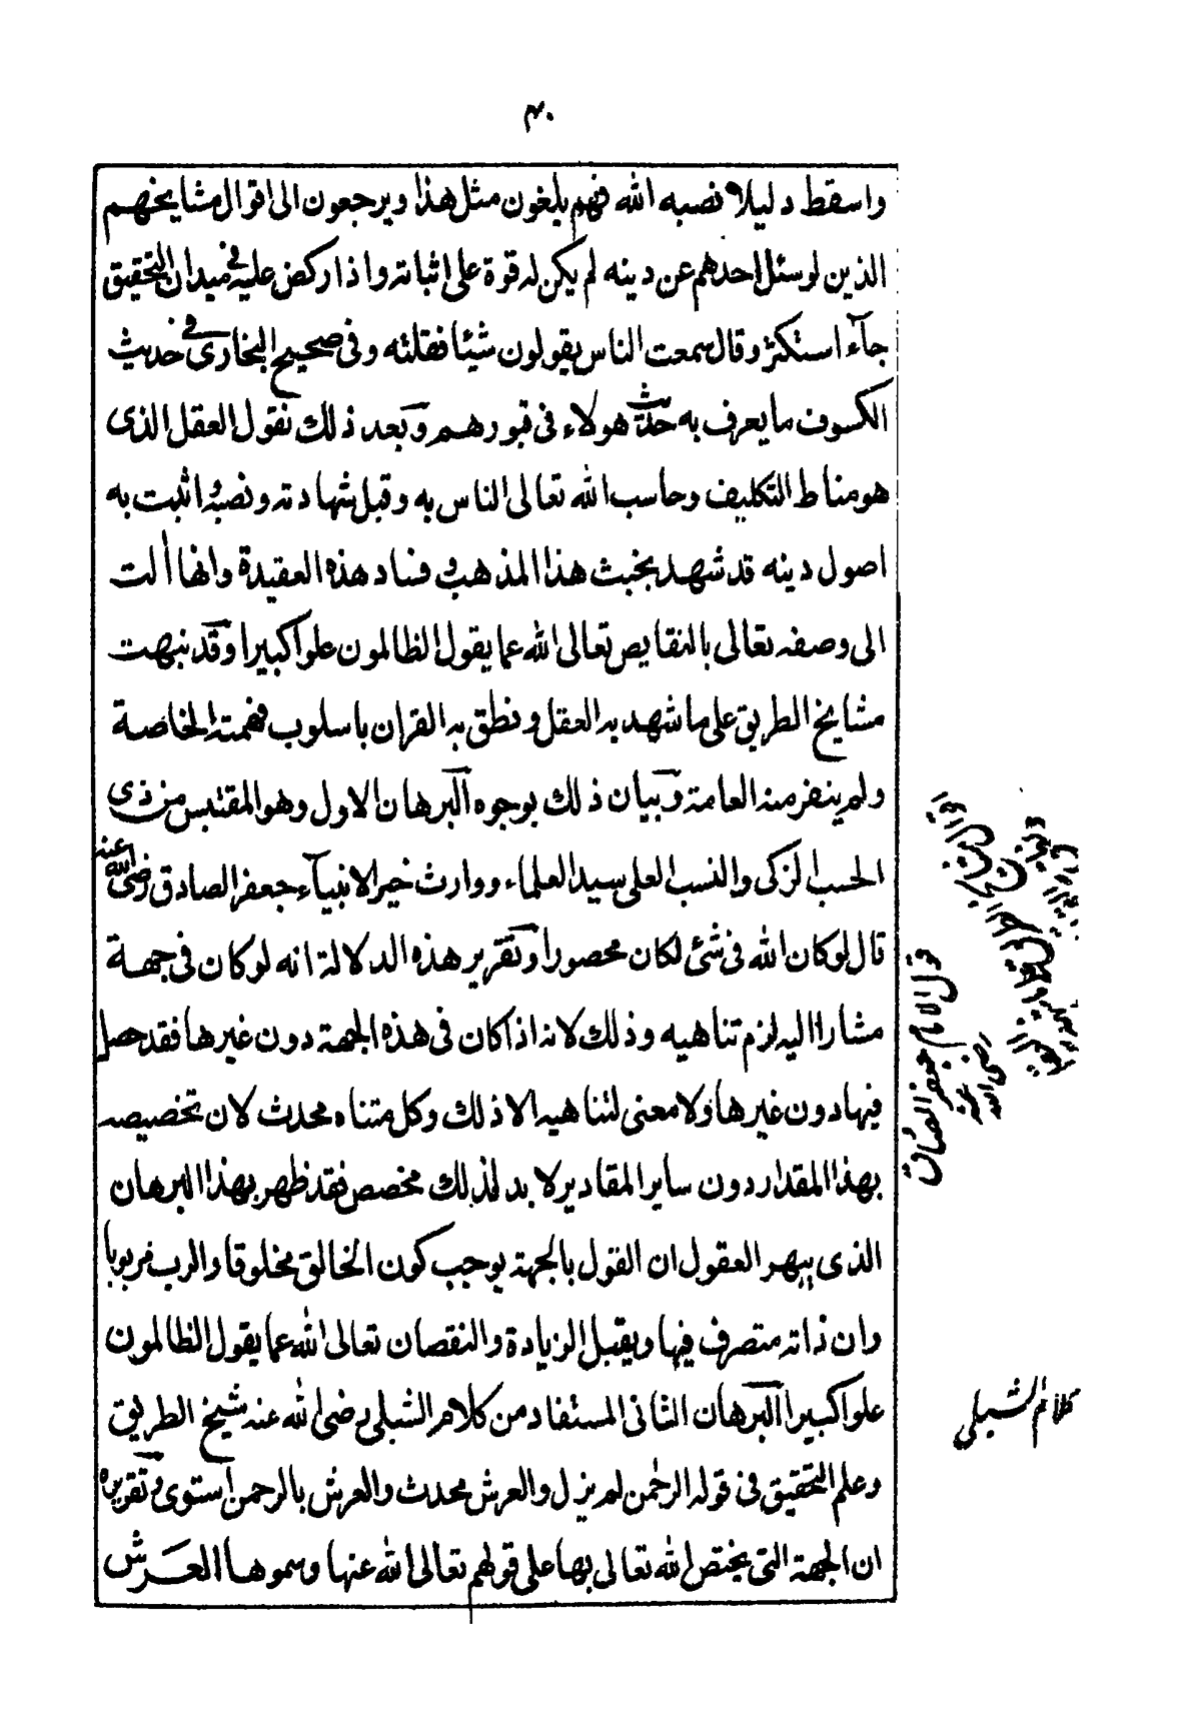 ٤٠
واسقط دليلا نصبه الله فهم يلغون مثل هذا ويرجعون الى اقوال مشايخهم
الذين لو سئل احدهم عن دينه لم يكن له قوة على اثباته واذا ركض عليه في ميدان التحقيق
جآء استكثر وقال سمعت الناس يقولون شيئا فقلته وفي صحيح البخارى في حديث
الكسوف ما يعرف به حدث هولاء في قبورهم وبعد ذلك نقول العقل الذى
هو مناط التكليف وحاسب الله تعالى الناس به وقبل شهادته ونصبه اثبت به
اصول دينه قد شهد بخبث هذا المذهب وفساد هذه العقيدة وانها ألت
الى وصفه تعالى بالنقايص تعالى الله عما يقول الظالمون علوا كبيرا وقد نبهت
مشايخ الطريق على ما شهد به العقل ونطق به القران باسلوب فهمته الخاصة
ولم ينفر منه العامة وبيان ذلك بوجوه البرهان الاول وهو المقتبس من ذى
الحسب الزكى والنسب العلى سيد العلماء ووارث خير الانبيآء جعفر الصادق رضى الله عنه
قال لو كان الله في شئ لكان محصورا وتقرير هذه الدلالة انه لو كان في جهة
مشارا اليه لزم تناهيه وذلك لانه اذا كان في هذه الجهة دون غيرها فقد حصل
فيها دون غيرها ولا معنى لتناهيه الا ذلك وكل متناه محدث لان تخصيصه
بهذا المقدار دون ساير المقادير لا بد لذلك مخصص فقد ظهر بهذا البرهان
الذى يبهر العقول ان القول بالجهة يوجب كون الخالق مخلوقا والرب مربوبا
وان ذاته متصرف فيها ويقبل الزيادة والنقصان تعالى الله عما يقول الظالمون
علوا كبيرا البرهان الثانى المستفاد من كلام الشبلى رضى الله عنه شيخ الطريق
وعلم التحقيق في قوله الرحمن لم يزل والعرش محدث والعرش بالرحمن استوى وتقريره
ان الجهة التى يختص الله تعالى بها على قولهم تعالى الله عنها وسموها العرش
قول الامام جعفر الصادق
رضى الله عنه
كلام الشبلى